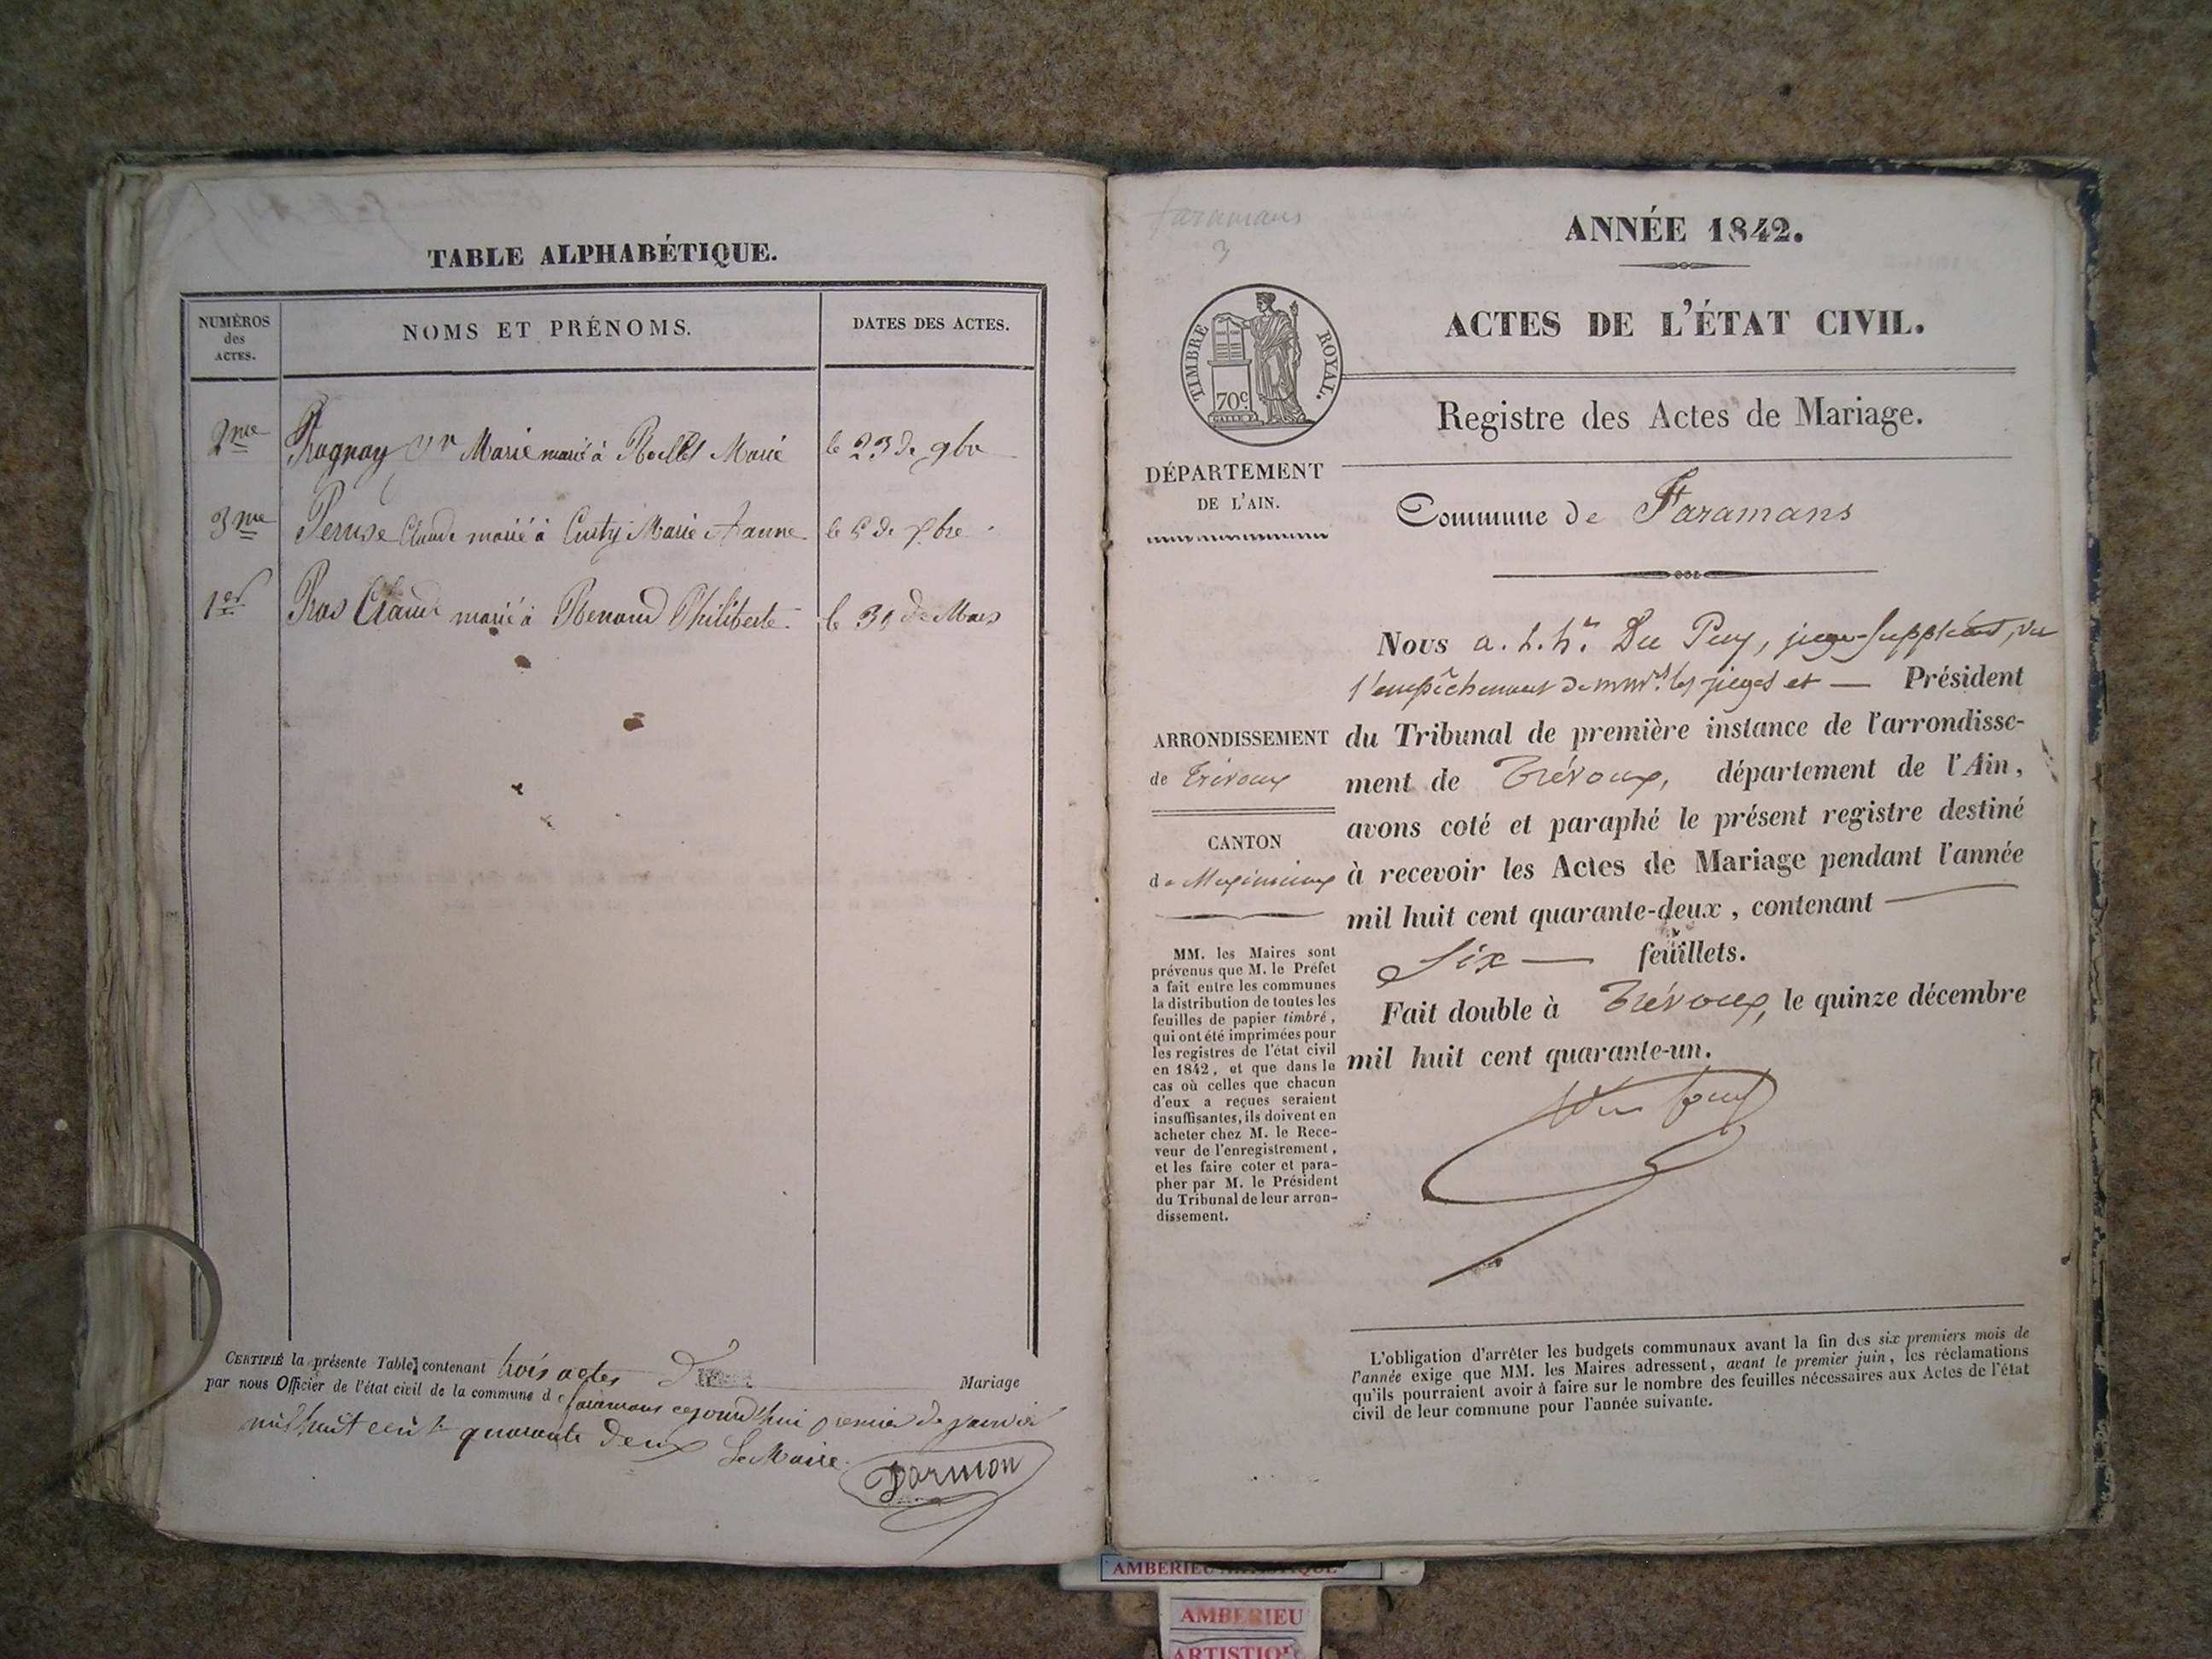 TABLE ALPHABÉTIQUE.
NUMÉROS
des
ACTES.
NOMS ET PRÉNOMS.
DATES DES ACTES.
2me Marie marié à Marie le 23 de 9bre
3me Claude marié à Marie le 5 de
1er Pras Claude marié à Renaud Philiberte le 31 de Mars
CERTIFIÉ la présente Table contenant trois actes De Mariage
par nous Officier de l'état civil de la commune de faramans cejourd'hui premier de janvier
mil huit cent quarante deux Le Maire
faramans
3
ANNÉE 1842.
ACTES DE L'ÉTAT CIVIL.
TIMBRE ROYAL.
70c
Registre des Actes de Mariage.
DÉPARTEMENT
DE L'AIN.
Commune de Faramans
Nous a. h. Du Puy, juge-suppléant, vu
l'empêchement de mm.rs les juges et — Président
du Tribunal de première instance de l'arrondisse-
ment de Trévoux, département de l'Ain,
avons coté et paraphé le présent registre destiné
à recevoir les Actes de Mariage pendant l'année
mil huit cent quarante-deux, contenant —
Six — feuillets.
Fait double à Trévoux, le quinze décembre
mil huit cent quarante-un.
Du Puy
ARRONDISSEMENT
de Trévoux
CANTON
de Meximieux
MM. les Maires sont
prévenus que M. le Préfet
a fait entre les communes
la distribution de toutes les
feuilles de papier timbré,
qui ont été imprimées pour
les registres de l'état civil
en 1842, et que dans le
cas où celles que chacun
d'eux a reçues seraient
insuffisantes, ils doivent en
acheter chez M. le Rece-
veur de l'enregistrement,
et les faire coter et para-
pher par M. le Président
du Tribunal de leur arron-
dissement.
L'obligation d'arrêter les budgets communaux avant la fin des six premiers mois de
l'année exige que MM. les Maires adressent, avant le premier juin, les réclamations
qu'ils pourraient avoir à faire sur le nombre des feuilles nécessaires aux Actes de l'état
civil de leur commune pour l'année suivante.
AMBERIEU ARTISTIQUE
AMBERIEU
ARTISTIQUE